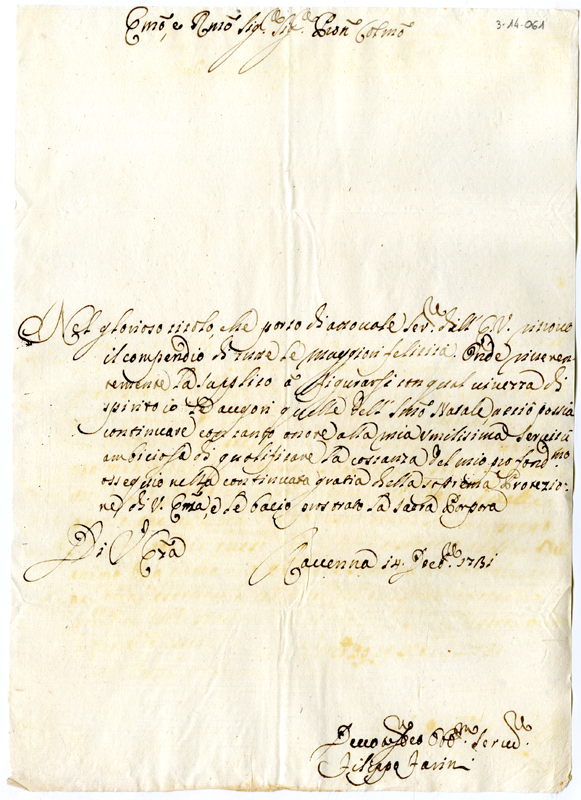 3-14-061
Emõ, e Rmõ Sig.re Sig.re Pron Colmõ
Nel glorioso titolo, che porto di attuale Ser.re dell' E.V. ritrovo
il compendio di tutte le maggiori felicità. Onde riveren
temente la supplico à figurarsi con qual vivezza di
spirito io Le auguri quelle dell' Smõ Natale acciò possia
continuare con tanto onore alla mia umilissima servitù
ambiciosa di qualificare la costanza del mio profond.mo
ossequio nella continuata gratia della suprema Protezio-
ne, di V. Emã, e le bacio prostrato la sacra Porpora
Di V. Emã
Ravenna 14. Decb.re 1731
Obb.mo Ser.re
Filippo